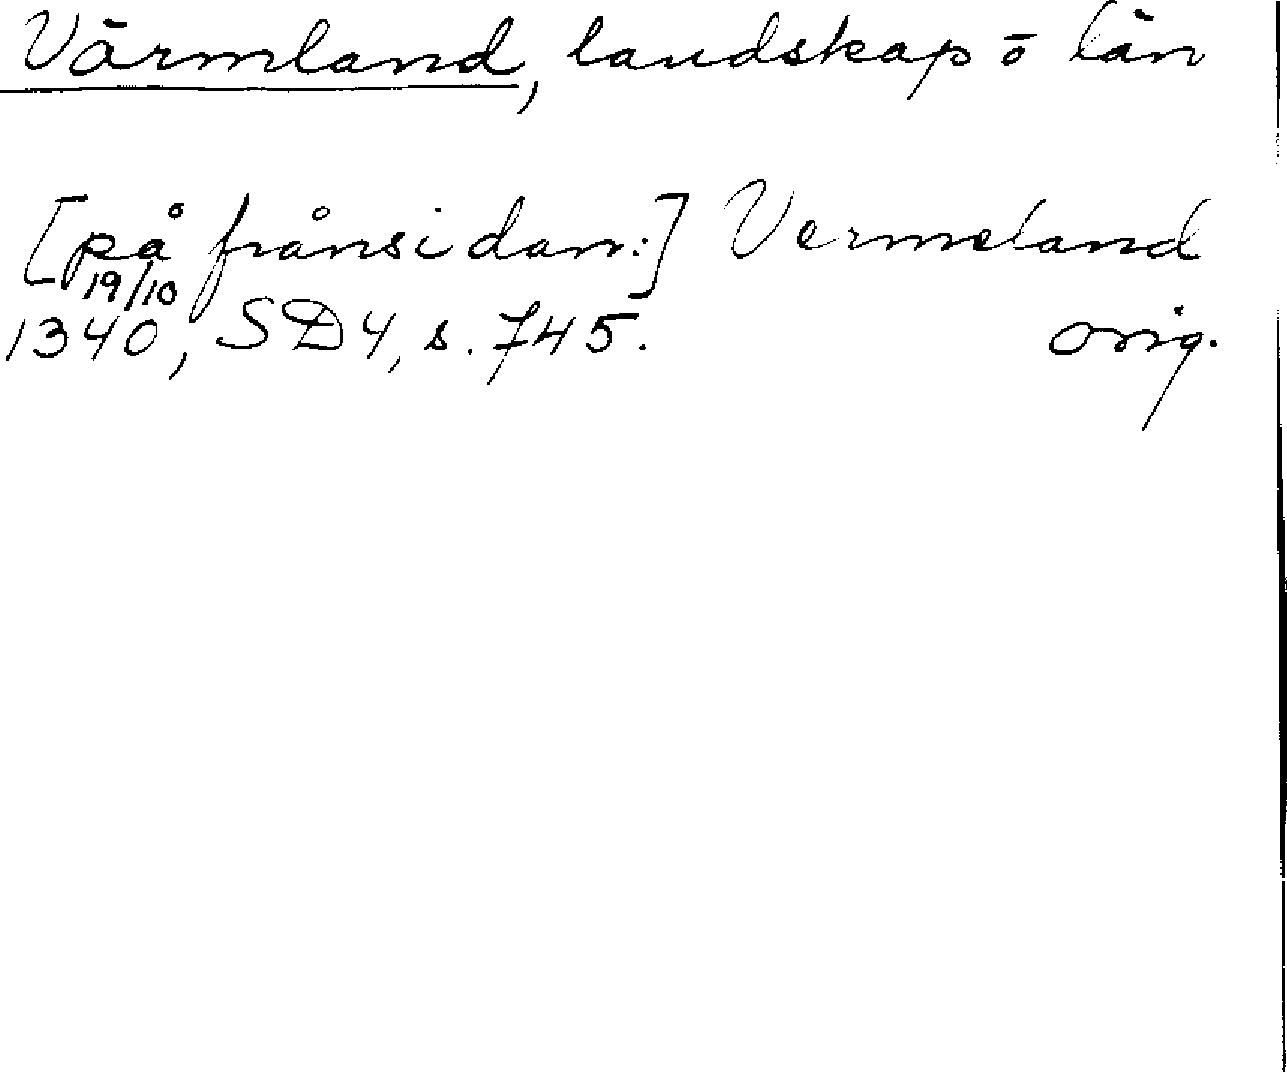 Värmland, landskap o län
[på frånsidan:] Vermeland
19/10
1340, SD4, s. 745. orig.